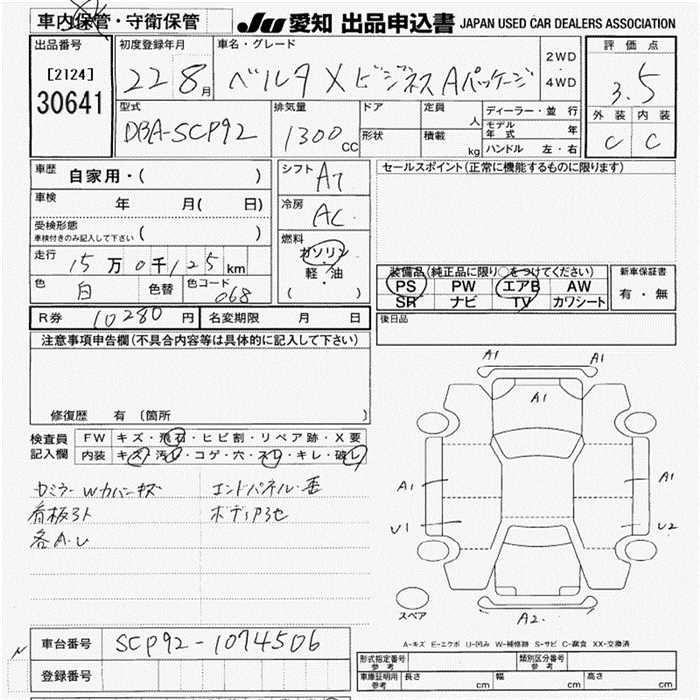 車内保管・守衛保管
JU 愛知 出品申込書 JAPAN USED CAR DEALERS ASSOCIATION
出品番号 初度登録年月 車名・グレード 2WD 評価点
[2124] 22 8月 ベルタ X ビジネス Aパッケージ 4WD 3.5
30641
型式 排気量 ドア 定員 人 ディーラー・並行 外装 内装
DBA-SCP92 1300cc 形状 積載 kg モデル年式 年 C C
ハンドル 左・右
車歴 自家用・( ) シフト AT セールスポイント(正常に機能するものに限ります)
車検 年 月( 日) 冷房 AC
受検形態
車検付きのみ記入して下さい ( )
燃料
走行 15万0千125km ガソリン・軽・油 ( )
装備品(純正品に限り○をつけてください) 新車保証書
色 白 色替 色コード 068
PS PW エアB AW 有・無
SR ナビ TV カワシート
R券 10280円 名変期限 月 日 後日品
注意事項申告欄(不具合内容等は具体的に記入して下さい)
修復歴 有(箇所 )
検査員記入欄
FW キズ・飛石・ヒビ割・リペア跡・X要
内装 キズ・汚れ・コゲ・穴・スレ・キレ・破レ
Wカバーキズ エンドパネル・歪
看板跡 ボディ
各A.U
A1 A1
A1
A1 A1
U1 U2
A2
スペア
A-キズ E-エクボ U-凹み W-補修跡 S-サビ C-腐食 XX-交換済
車台番号 SCP92-1074506
登録番号
形式指定番号 参考 類別区分番号 参考
車庫証明用 参考 長さ cm 幅 cm 高さ cm